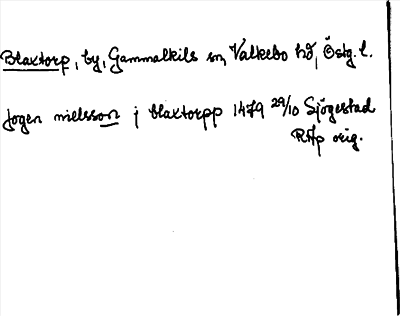 Blaxtorp, by, Gammalkils sn, Valkebo hd, Östg. l.
Jogen nielsson j blaxtorpp 1479 29/10 Sjögestad
RAp orig.